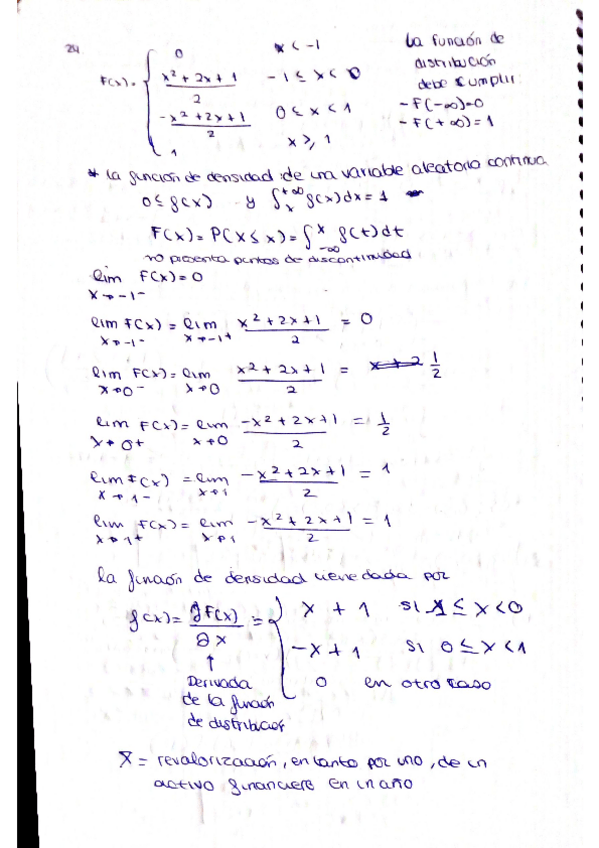 24
F(x) = { 0 x < -1
(x² + 2x + 1)/2 -1 ≤ x < 0
(-x² + 2x + 1)/2 0 ≤ x < 1
1 x ≥ 1
La función de
distribución
debe cumplir:
- F(-∞)=0
- F(+∞)=1
* La función de densidad de una variable aleatoria continua
0 ≤ f(x) y ∫ₓ^{+∞} f(x)dx = 1
F(x) = P(X ≤ x) = ∫_{-∞}^{x} f(t)dt
no presenta puntos de discontinuidad
lim F(x) = 0
x→-1⁻
lim F(x) = lim (x² + 2x + 1)/2 = 0
x→-1⁻ x→-1⁺
lim F(x) = lim (x² + 2x + 1)/2 = 1/2
x→0⁻ x→0
lim F(x) = lim (-x² + 2x + 1)/2 = 1/2
x→0⁺ x→0
lim F(x) = lim (-x² + 2x + 1)/2 = 1
x→1⁻ x→1
lim F(x) = lim (-x² + 2x + 1)/2 = 1
x→1⁺ x→1
la función de densidad viene dada por
f(x) = ∂F(x)/∂x = { x + 1 si -1 ≤ x < 0
-x + 1 si 0 ≤ x < 1
0 en otro caso
↑
Derivada
de la función
de distribución
X = revalorización, en tanto por uno, de un
activo financiero en un año